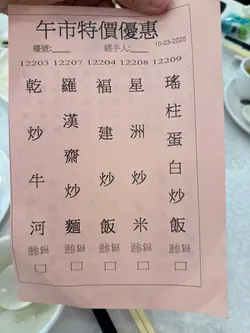 午市特價優惠
檯號:___ 經手人:___ 10-03-2025
12203 12207 12204 12208 12209
乾炒牛河
羅漢齋炒麵
福建炒飯
星洲炒米
瑤柱蛋白炒飯
$68 $68 $68 $68 $68